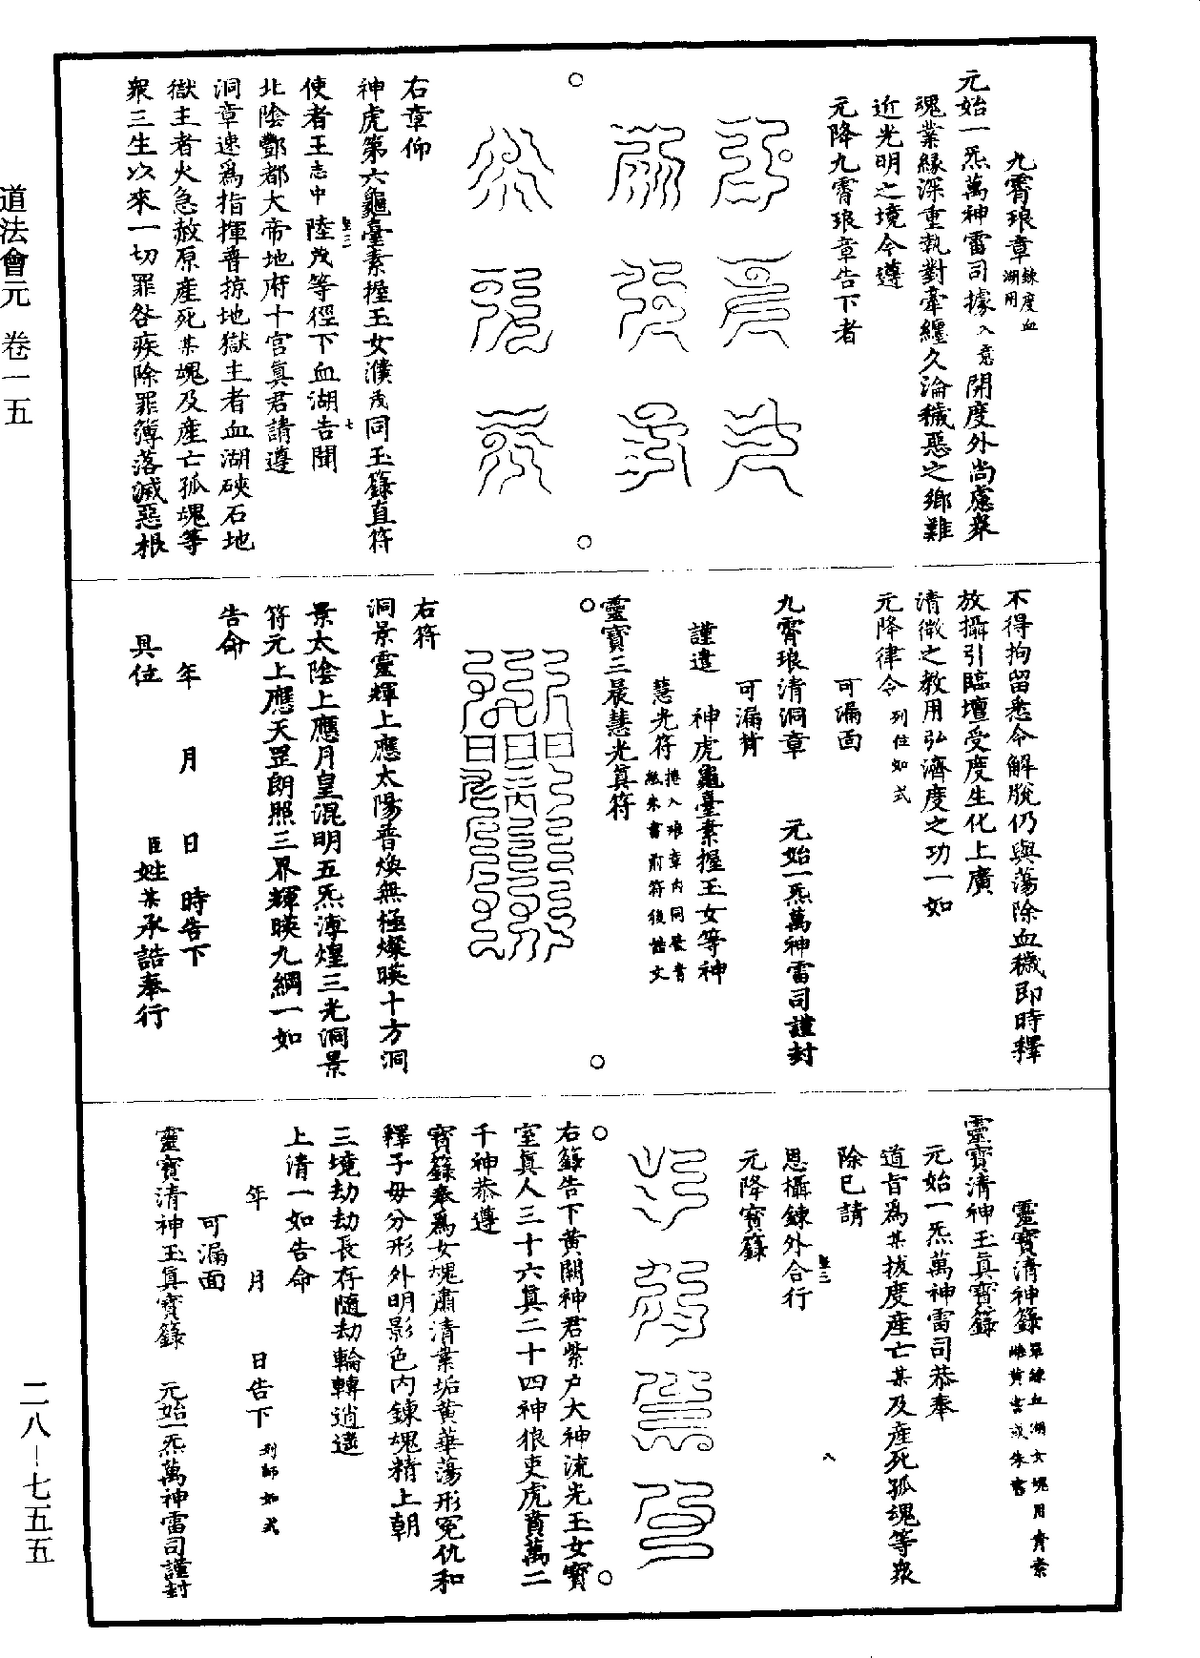 道法會元 卷一五
九霄琅章鍊度血湖用
元始一炁萬神雷司據入意開度外尚慮衆
魂業緣深重執對牽纏久淪穢惡之鄉難
近光明之境今遵
元降九霄琅章告下者
右章仰
神虎第六龜臺素握玉女濮茂同玉籙直符
使者王志中陸茂等徑下血湖告聞
北陰酆都大帝地府十宮真君請遵
洞章速爲指揮普掠地獄主者血湖硤石地
獄主者火急赦原產死某魂及產亡孤魂等
衆三生以來一切罪咎疾除罪簿落滅惡根
不得拘留悉令解脫仍與蕩除血穢即時釋
放攝引臨壇受度生化上廣
清微之教用弘濟度之功一如
元降律令列位如式
可漏面
九霄琅清洞章 元始一炁萬神雷司謹封
可漏背
謹遣 神虎龜臺素握玉女等神
慧光符捲入琅章內同發青紙朱書前符後誥文
靈寶三晨慧光真符
右符
洞景靈輝上應太陽普煥無極燦暎十方洞
景太陰上應月皇混明五炁溥煌三光洞景
符元上應天罡朗照三界輝暎九綱一如
告命
年 月 日 時告下
具位 臣姓某承誥奉行
靈寶清神籙單鍊血湖女魂用青素雌黃書或朱書
靈寶清神玉真寶籙
元始一炁萬神雷司恭奉
道旨爲某拔度產亡某及產死孤魂等衆
除已請
恩攝鍊外合行
元降寶籙
右籙告下黃闕神君紫戶大神流光玉女寶
室真人三十六真二十四神狼吏虎賁萬二
千神恭遵
寶籙奉爲女魂肅清業垢黃華蕩形冤仇和
釋子母分形外明影色內鍊魂精上朝
三境劫劫長存隨劫輪轉逍遙
上清一如告命
年 月 日告下列師如式
可漏面
靈寶清神玉真寶籙 元始一炁萬神雷司謹封
二八—七五五